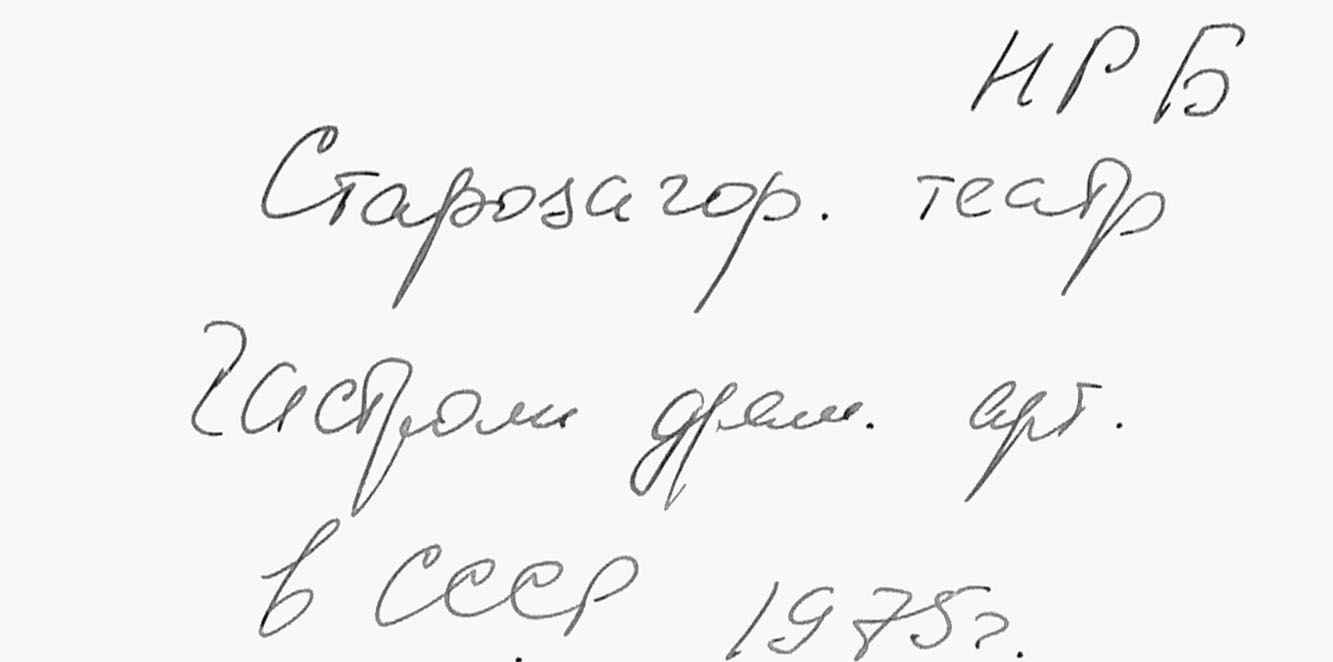 НРБ
Старозагор. театр
Гастроли драм. арт.
в СССР 1975г.